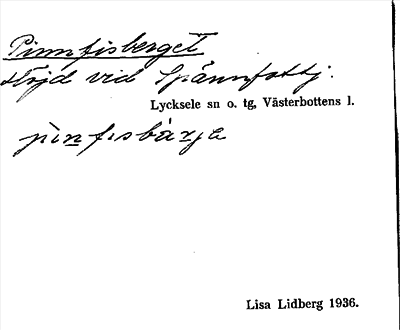 Pinnfisberget
höjd vid Spännfottj.
Lycksele sn o. tg, Västerbottens l.
pìnfisbàrja
Lisa Lidberg 1936.